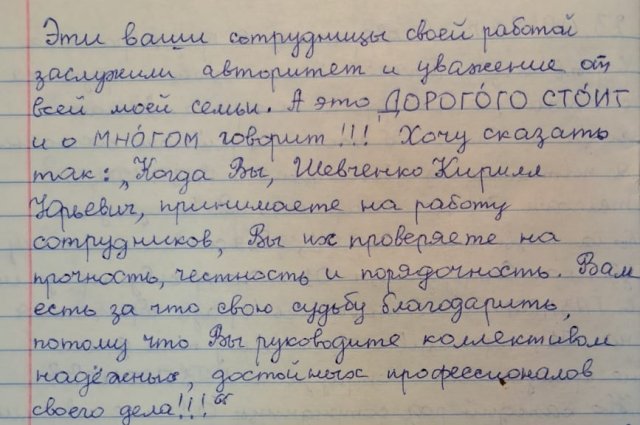 Эти ваши сотрудницы своей работой
заслужили авторитет и уважение от
всей моей семьи. А это ДОРОГО́ГО СТО́ИТ
и о МНО́ГОМ говорит!!! Хочу сказать
так: „Когда Вы, Шевченко Кирилл
Юрьевич, принимаете на работу
сотрудников, Вы их проверяете на
прочность, честность и порядочность. Вам
есть за что свою судьбу благодарить,
потому что Вы руководите коллективом
надёжных, достойных профессионалов
своего дела!!!“